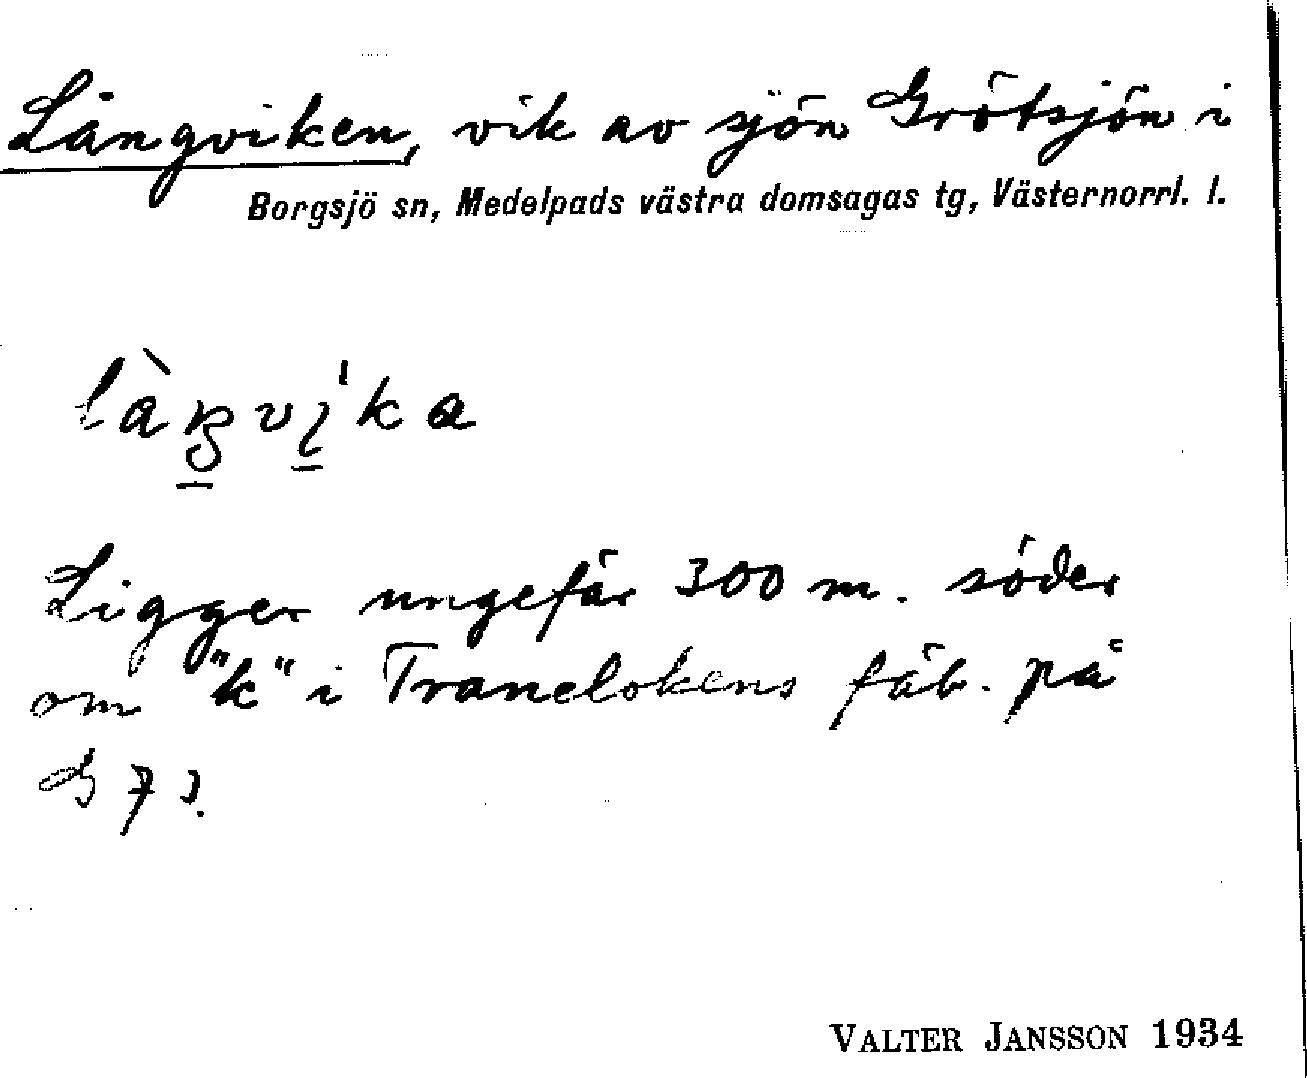 Långviken, vik av sjön Grötsjön i
Borgsjö sn, Medelpads västra domsagas tg, Västernorrl. l.
Ligger ungefär 300 m. söder
om "k" i Tranelokens fäb. på
G 73.
VALTER JANSSON 1934